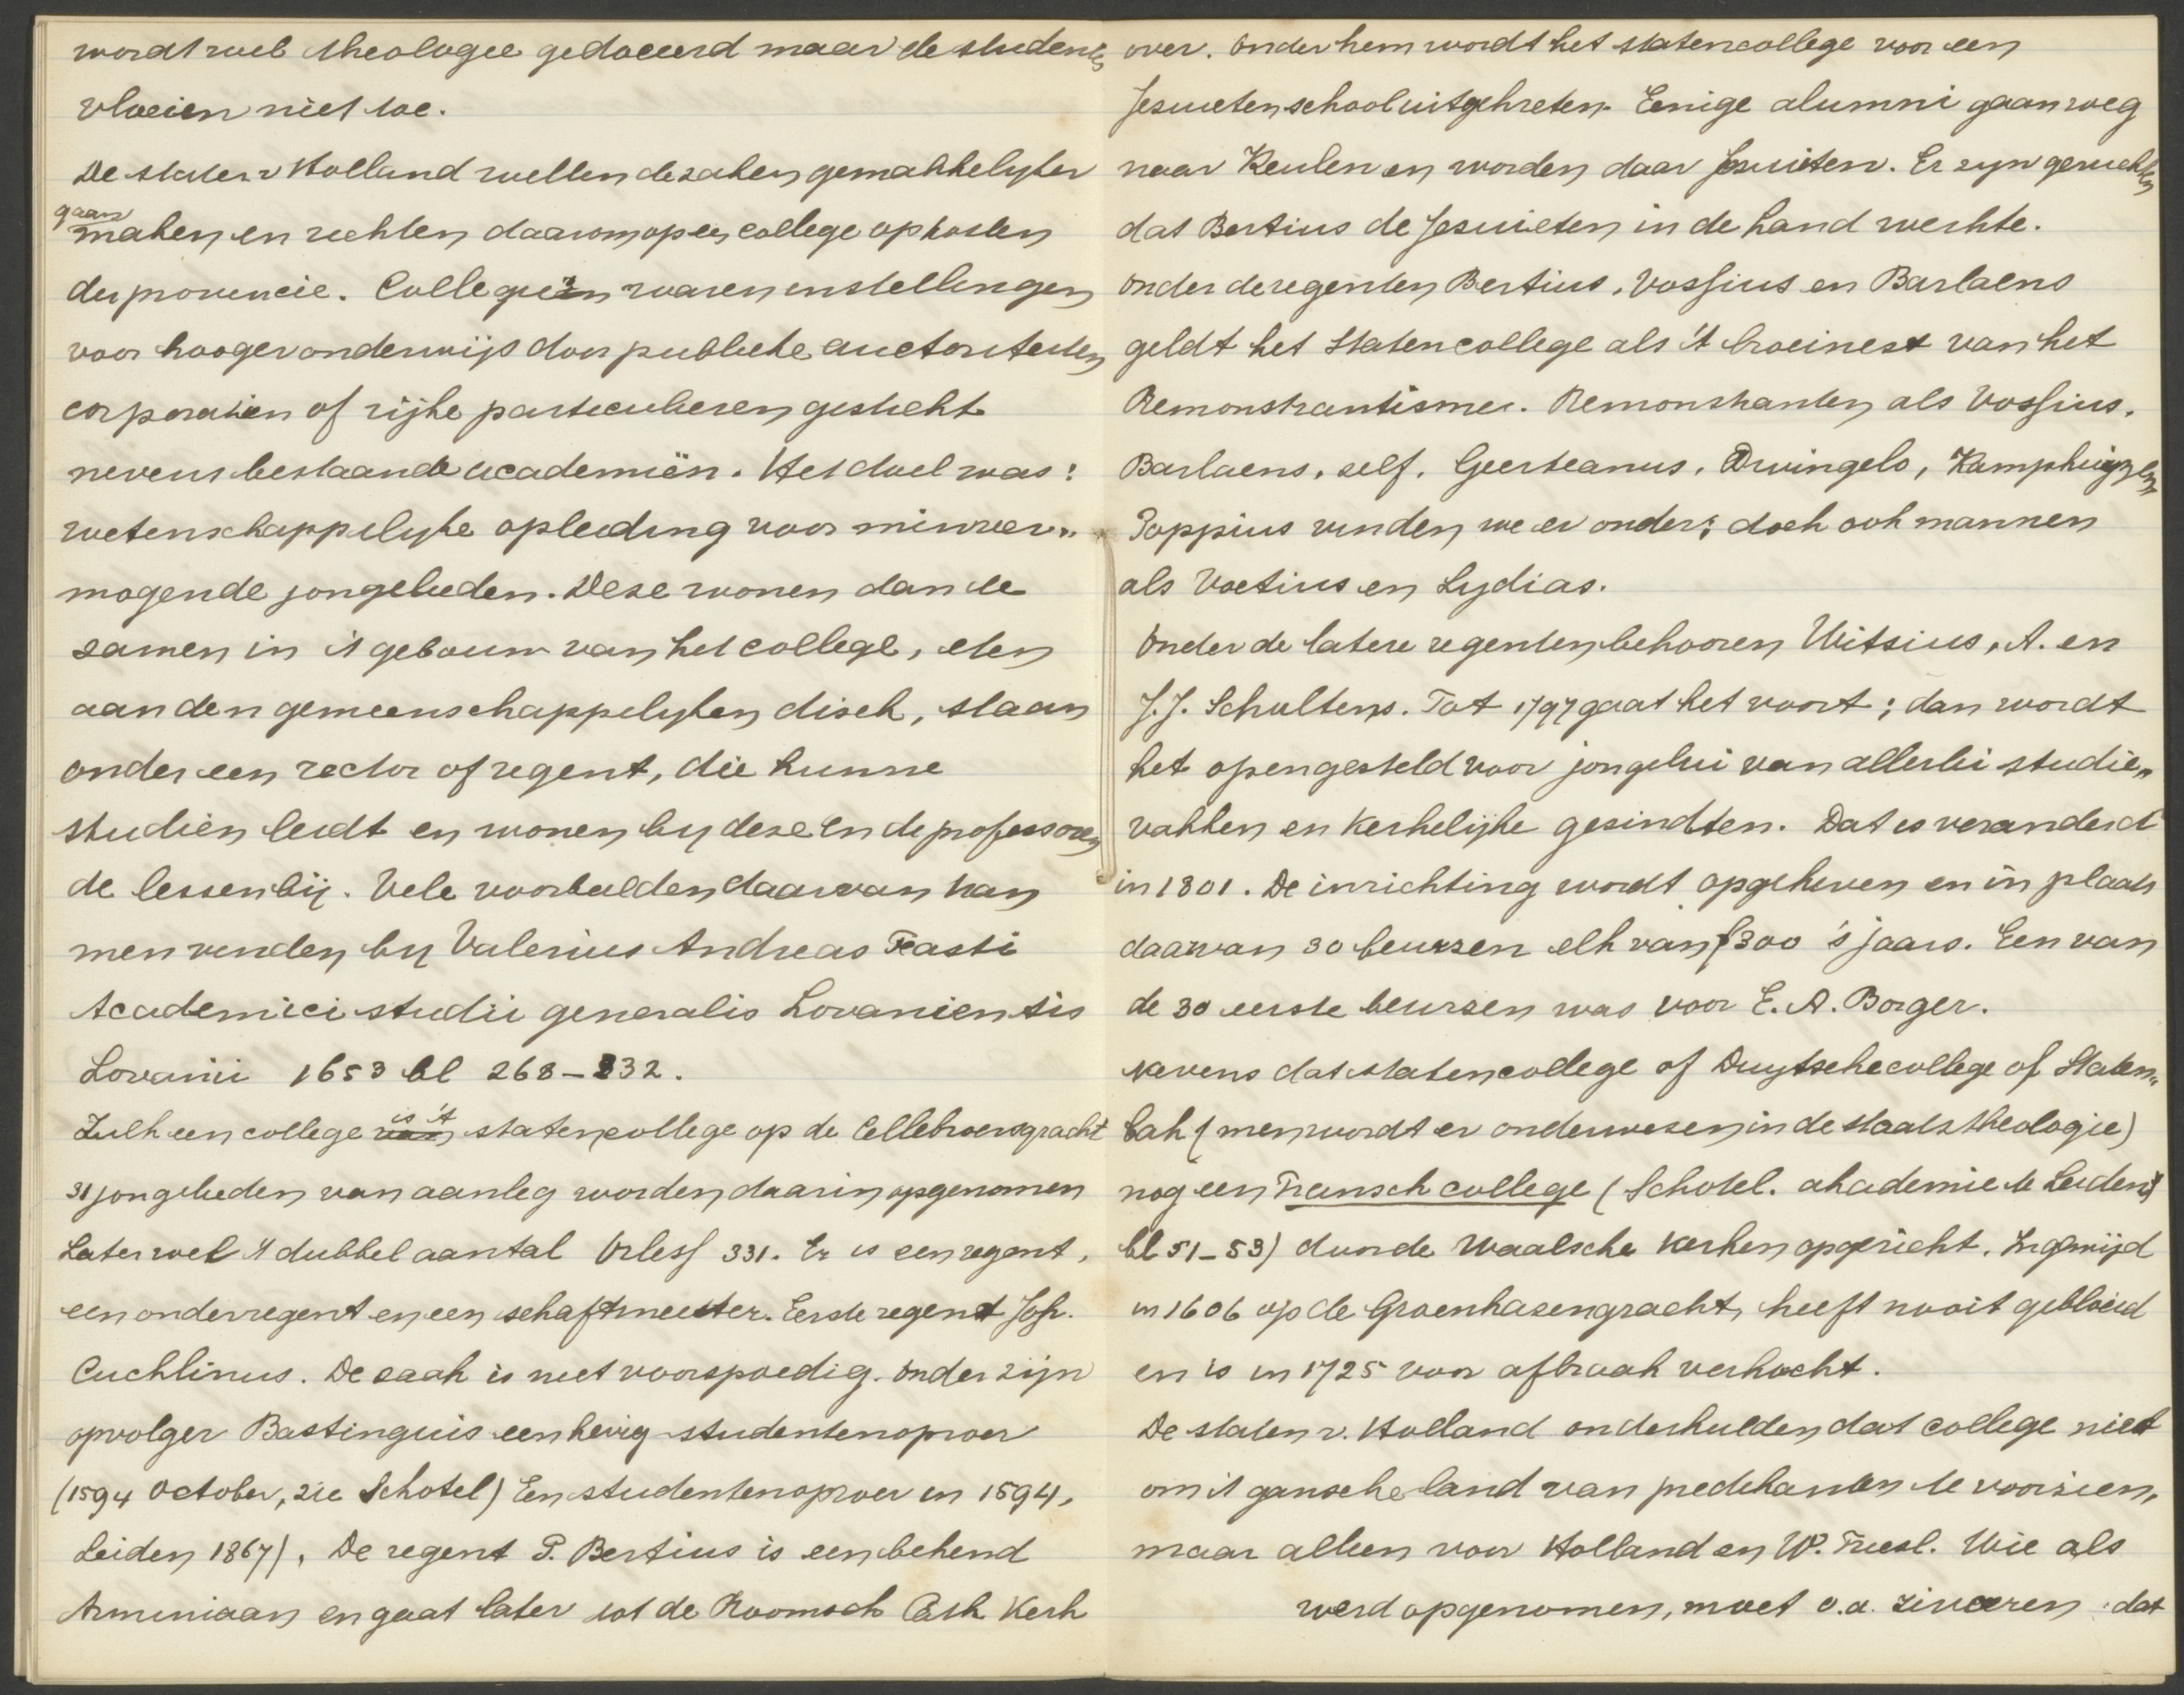 wordt wel theologie gedoceerd maar de studenten
vloeien niet toe.
De staten v Holland willen de zaken gemakkelyker
gaan
maken en richten daarom op een college op kosten
der provincie. Collegiën waren instellingen
voor hooger onderwijs door publieke auctoriteiten
corporatien of rijke particulieren gesticht
nevens bestaande academiën. Het doel was:
wetenschappelyke opleiding voor minver„
mogende jongelieden. Deze wonen dan te
zamen in 't gebouw van het college, eten
aan den gemeenschappelyken disch, staan
onder een rector of regent, die hunne
studiën leidt en wonen by deze en de professoren
de lessen bij. Vele voorbeelden daarvan kan
men vinden by Valerius Andreas Fasti
Academici studii generalis Lovaniensis
Lovanii 1653 bl 268-332.
Zulk een college is 't statencollege op de Cellebroersgracht
31 jongelieden van aanleg worden daarin opgenomen
Later wel 't dubbel aantal Orlers 331. Er is een regent,
een onderregent en een schaftmeester. Eerste regent Joh.
Cuchlinus. De zaak is niet voorspoedig. Onder zijn
opvolger Bastinguis een hevig studentenoproer
(1594 October, zie Schotel) Een studentenoproer in 1594,
Leiden 1867). De regent P. Bertius is een behend
Arminiaan en gaat later tot de Roomsch Cath Kerk
over. Onder hem wordt het statencollege voor een
Jesuieten school uitgekreten. Eenige alumni gaan weg
naar Keulen en worden daar Jesuiten. Er zyn geruchten
dat Bertius de Jesuieten in de hand werkte.
Onder de regenten Bertius, Vossius en Barlaens
geldt het Statencollege als 't broeinest van het
Remonstrantisme. Remonstranten als Vossius,
Barlaens, self, Geesteanus, Dwingelo, Kamphuyzen
Poppius vinden we er onder; doch ook mannen
als Voetius en Lydias.
Onder de latere regenten behooren Witsius, A. en
J.J. Schultens. Tot 1797 gaat het voort; dan wordt
het opengesteld voor jongelui van allerlei studie„
vakken en kerkelijke gesindten. Dat is veranderd
in 1801. De inrichting wordt opgeheven en in plaats
daarvan 30 beurzen elk van f300 's jaars. Een van
de 30 eerste beurzen was voor E. A. Borger.
Nevens dat statencollege of Duytsche college of Staten„
bak (men wordt er onderwesen in de staatstheologie)
nog een Fransch college (Schotel. akademie te Leiden
bl 51-53) door de Waalsche kerken opgericht. Ingewijd
in 1606 op de Groenhazengracht, heeft nooit gebloeid
en is in 1725 voor afbraak verkocht.
De staten v. Holland onderhielden dat college niet
om 't gansche land van predikanten te voorzien,
maar alleen voor Holland en W. Friesl. Wie als
werd opgenomen, moet o.a. zweeren dat